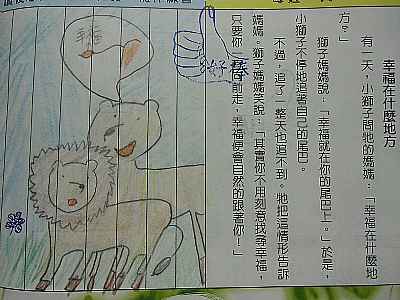 幸福在什麼地方
有一天，小獅子問牠的媽媽：「幸福在什麼地
方？」
獅子媽媽說：「幸福就在你的尾巴上。」於是，
小獅子不停地追著自己的尾巴。
不過，追了一整天也追不到。牠把這情形告訴
媽媽。獅子媽媽笑說：「其實你不用刻意找尋幸福，
只要你前走，幸福便會自然的跟著你！」
幸福